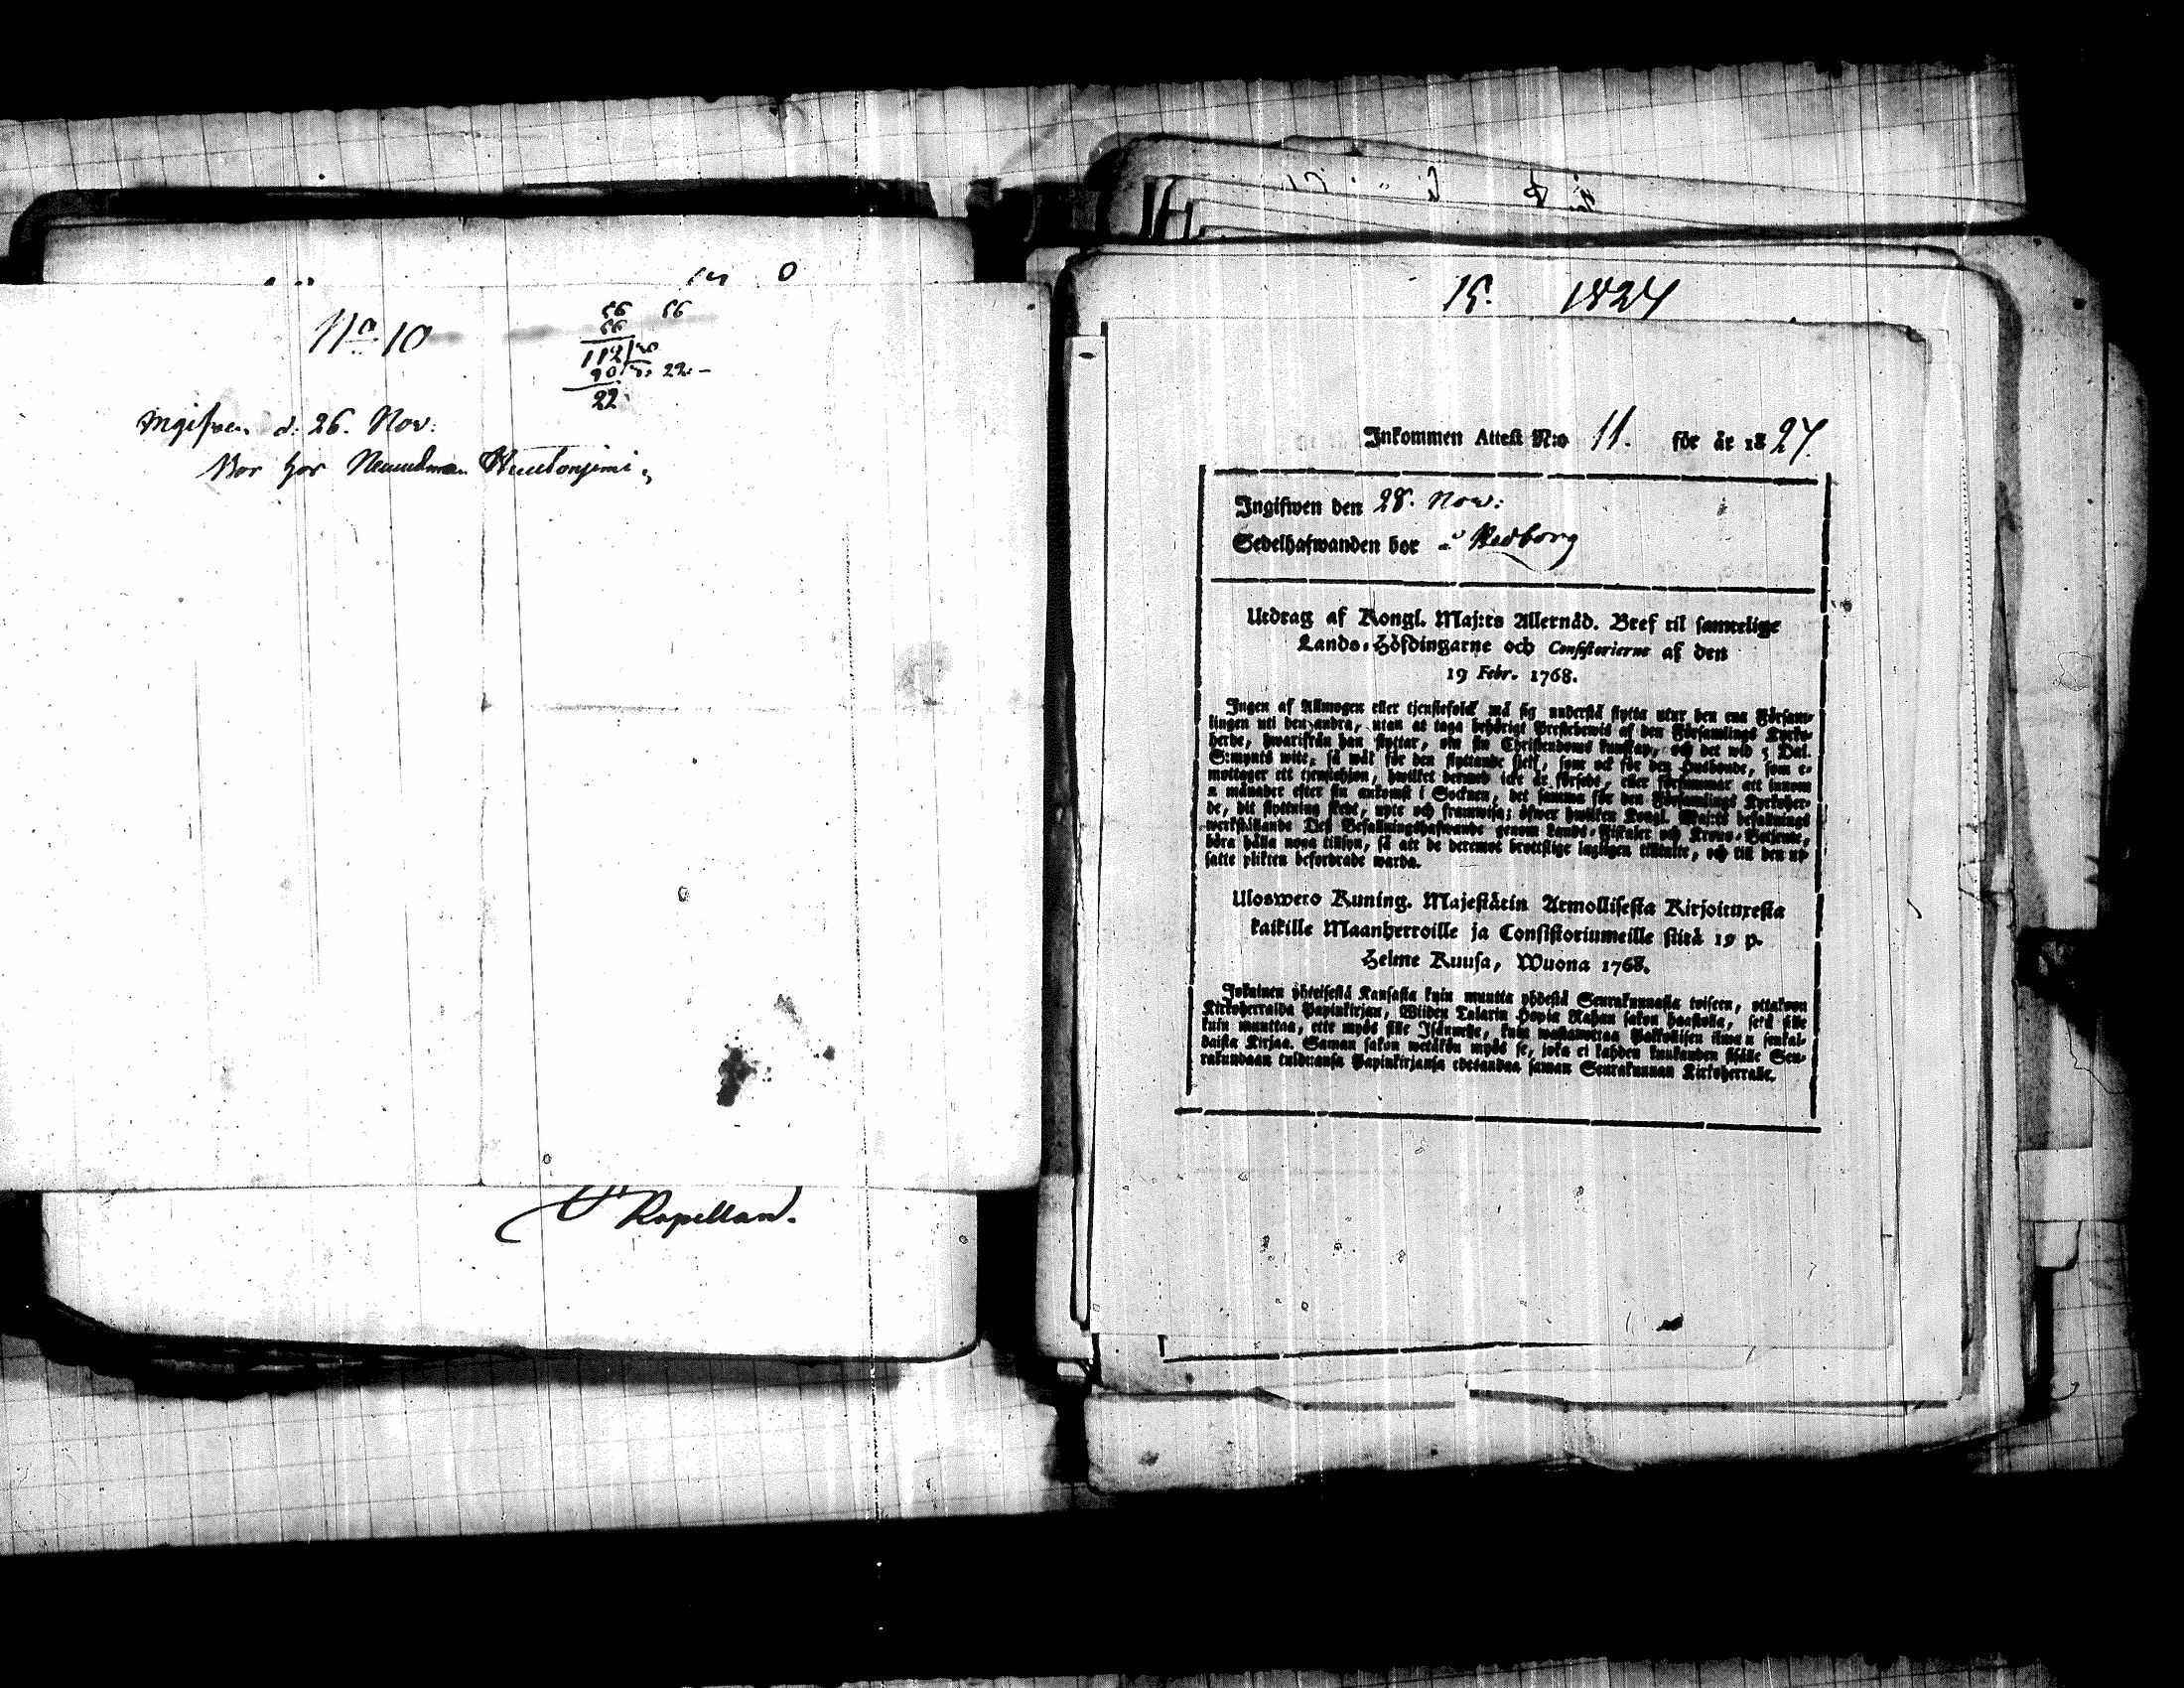 No 10
56 56
56
112
90 22.–
22
Ingifven d. 26. Nov:
Bor hos Nämndman
Kapellan.
15. 1827
Inkommen Attest N:o 11. för år 1827.
Ingifwen den 28. Nov:
Sedelhafwanden bor å Redborg
Utdrag af Kongl. Maj:ts Allernåd. Bref til samtelige
Lands-Höfdingarne och Consistorierne af den
19 Febr. 1768.
Ingen af Allmogen eller tjenstefolck må sig understå flytta utur den ena Försam-
lingen uti den andra, utan at taga behörigt Prestebewis af den Församlings Kyrko-
herde, hwarifrån han flyttar, om sin Christendoms kunskap, och det wid 5 Dal.
S:mynts wite, så wäl för den flyttande sjelf, som ock för den Husbonde, som e-
mottager ett tjenstehjon, hwilket dermed icke är försedt, eller försummar att innom
2 månader efter sin ankomst i Socknen, det samma för den Församlings Kyrkoher-
de, dit flyttning skedt, upte och framwisa; öfwer hwilken Kongl. Maj:ts befallnings
werkställande Dess Befallningshafwande genom Lands-Fiskaler och Krono-Betjente,
böra hålla noga tillsyn, så att de deremot brottslige lagligen tilltalte, och till den ut-
satte plikten befordrade warda.
Uloswero Kuning. Majestätin Armollisesta Kirjoituxesta
kaikille Maanherroille ja Consistoriumeille siitä 19 p.
Helme Kuusa, Wuona 1768.
Jokainen yhteisestä Kansasta kuin muutta yhdestä Seurakunnasta toiseen, ottakoon
Kirkoherralda Papinkirjan, Wiiden Talarin Hopia Rahan sakon haastolla, sekä sille
kuin muuttaa, ette myös sille Isännelle, kuin wastanottaa Palkollisen ilman senkal-
daista Kirjaa. Saman sakon wetäkön myös se, joka ei kahden kuukauden sisälle Seu-
rakundaan tulduansa Papinkirjansa edesandaa saman Seurakunnan Kirkoherralle.